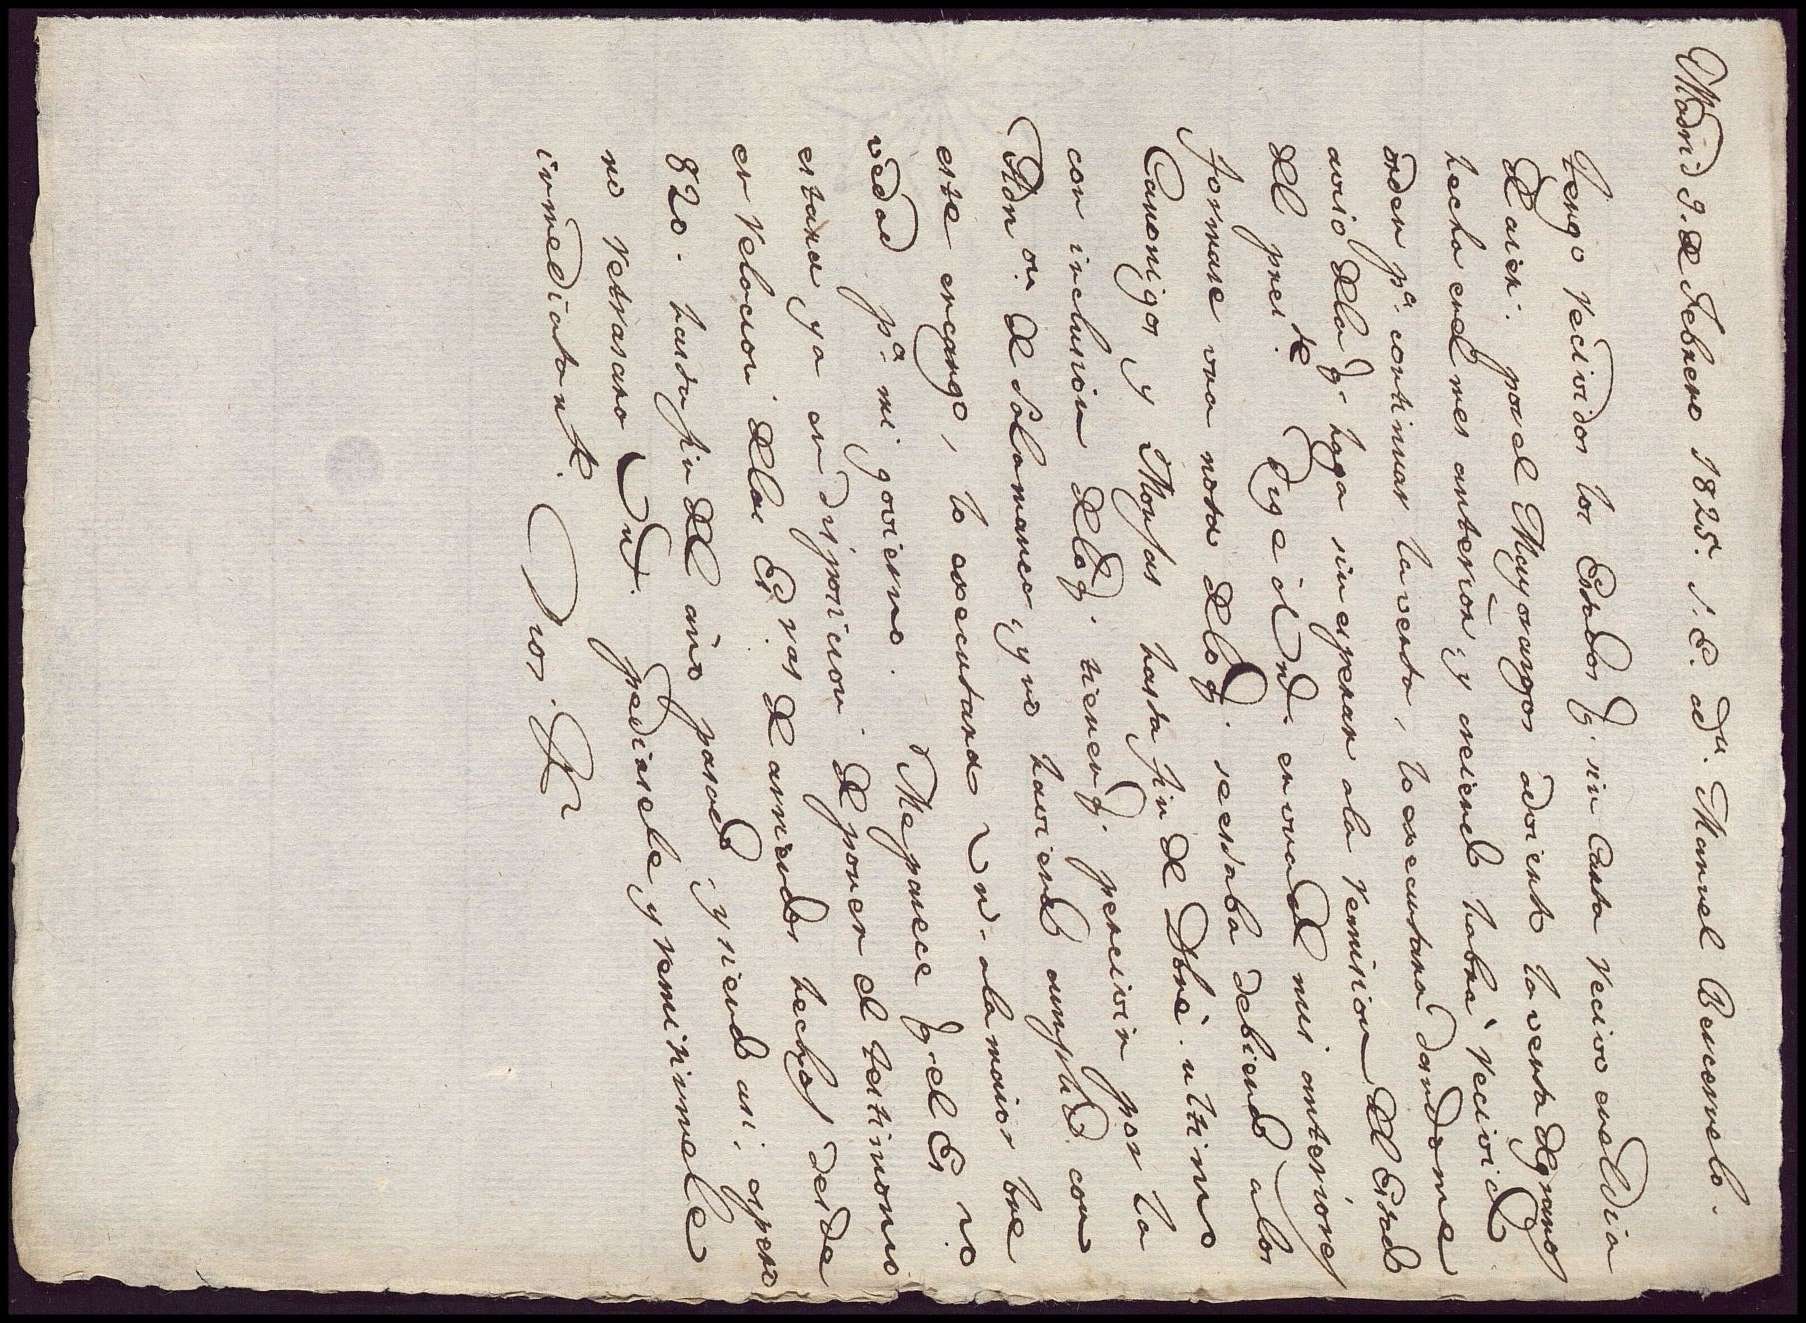 Madrid 9. de Febrero 1825. S.E. a Dn. Manuel Bencomelo.
Tengo recividos los Estados q. sin Carta recivo en el dia
de aier. por el Mayorazgos advierto la venta de grano
hecha en el mes anterior, y creiendo habrá recivido
orden pa. continuar la venta, lo executará dandome
aviso de la q. haga sin esperar a la remision del Estado
del preste. Dige a Vd. en una de mis anteriores
formase una nota de lo q. se estaba debiendo a los
Canonigos y Monjas hasta fin de Dbre. ultimo
con inclusion de lo q. tienen q. percivir por la
Admon. de Salamanca, y no haviendo cumplido con
este encargo, lo executará Vd. a la maior bre
vedad pa. mi govierno. Me parece q. el Es no
estara ya en disposicion de poner el testimonio
en relacion de las Esras de arriendos hechas desde
820. hasta fin del año pasado, y siendo asi, espero
no retrasara Vd. pedirsele y remitirmele
inmediatamte. Dios. &